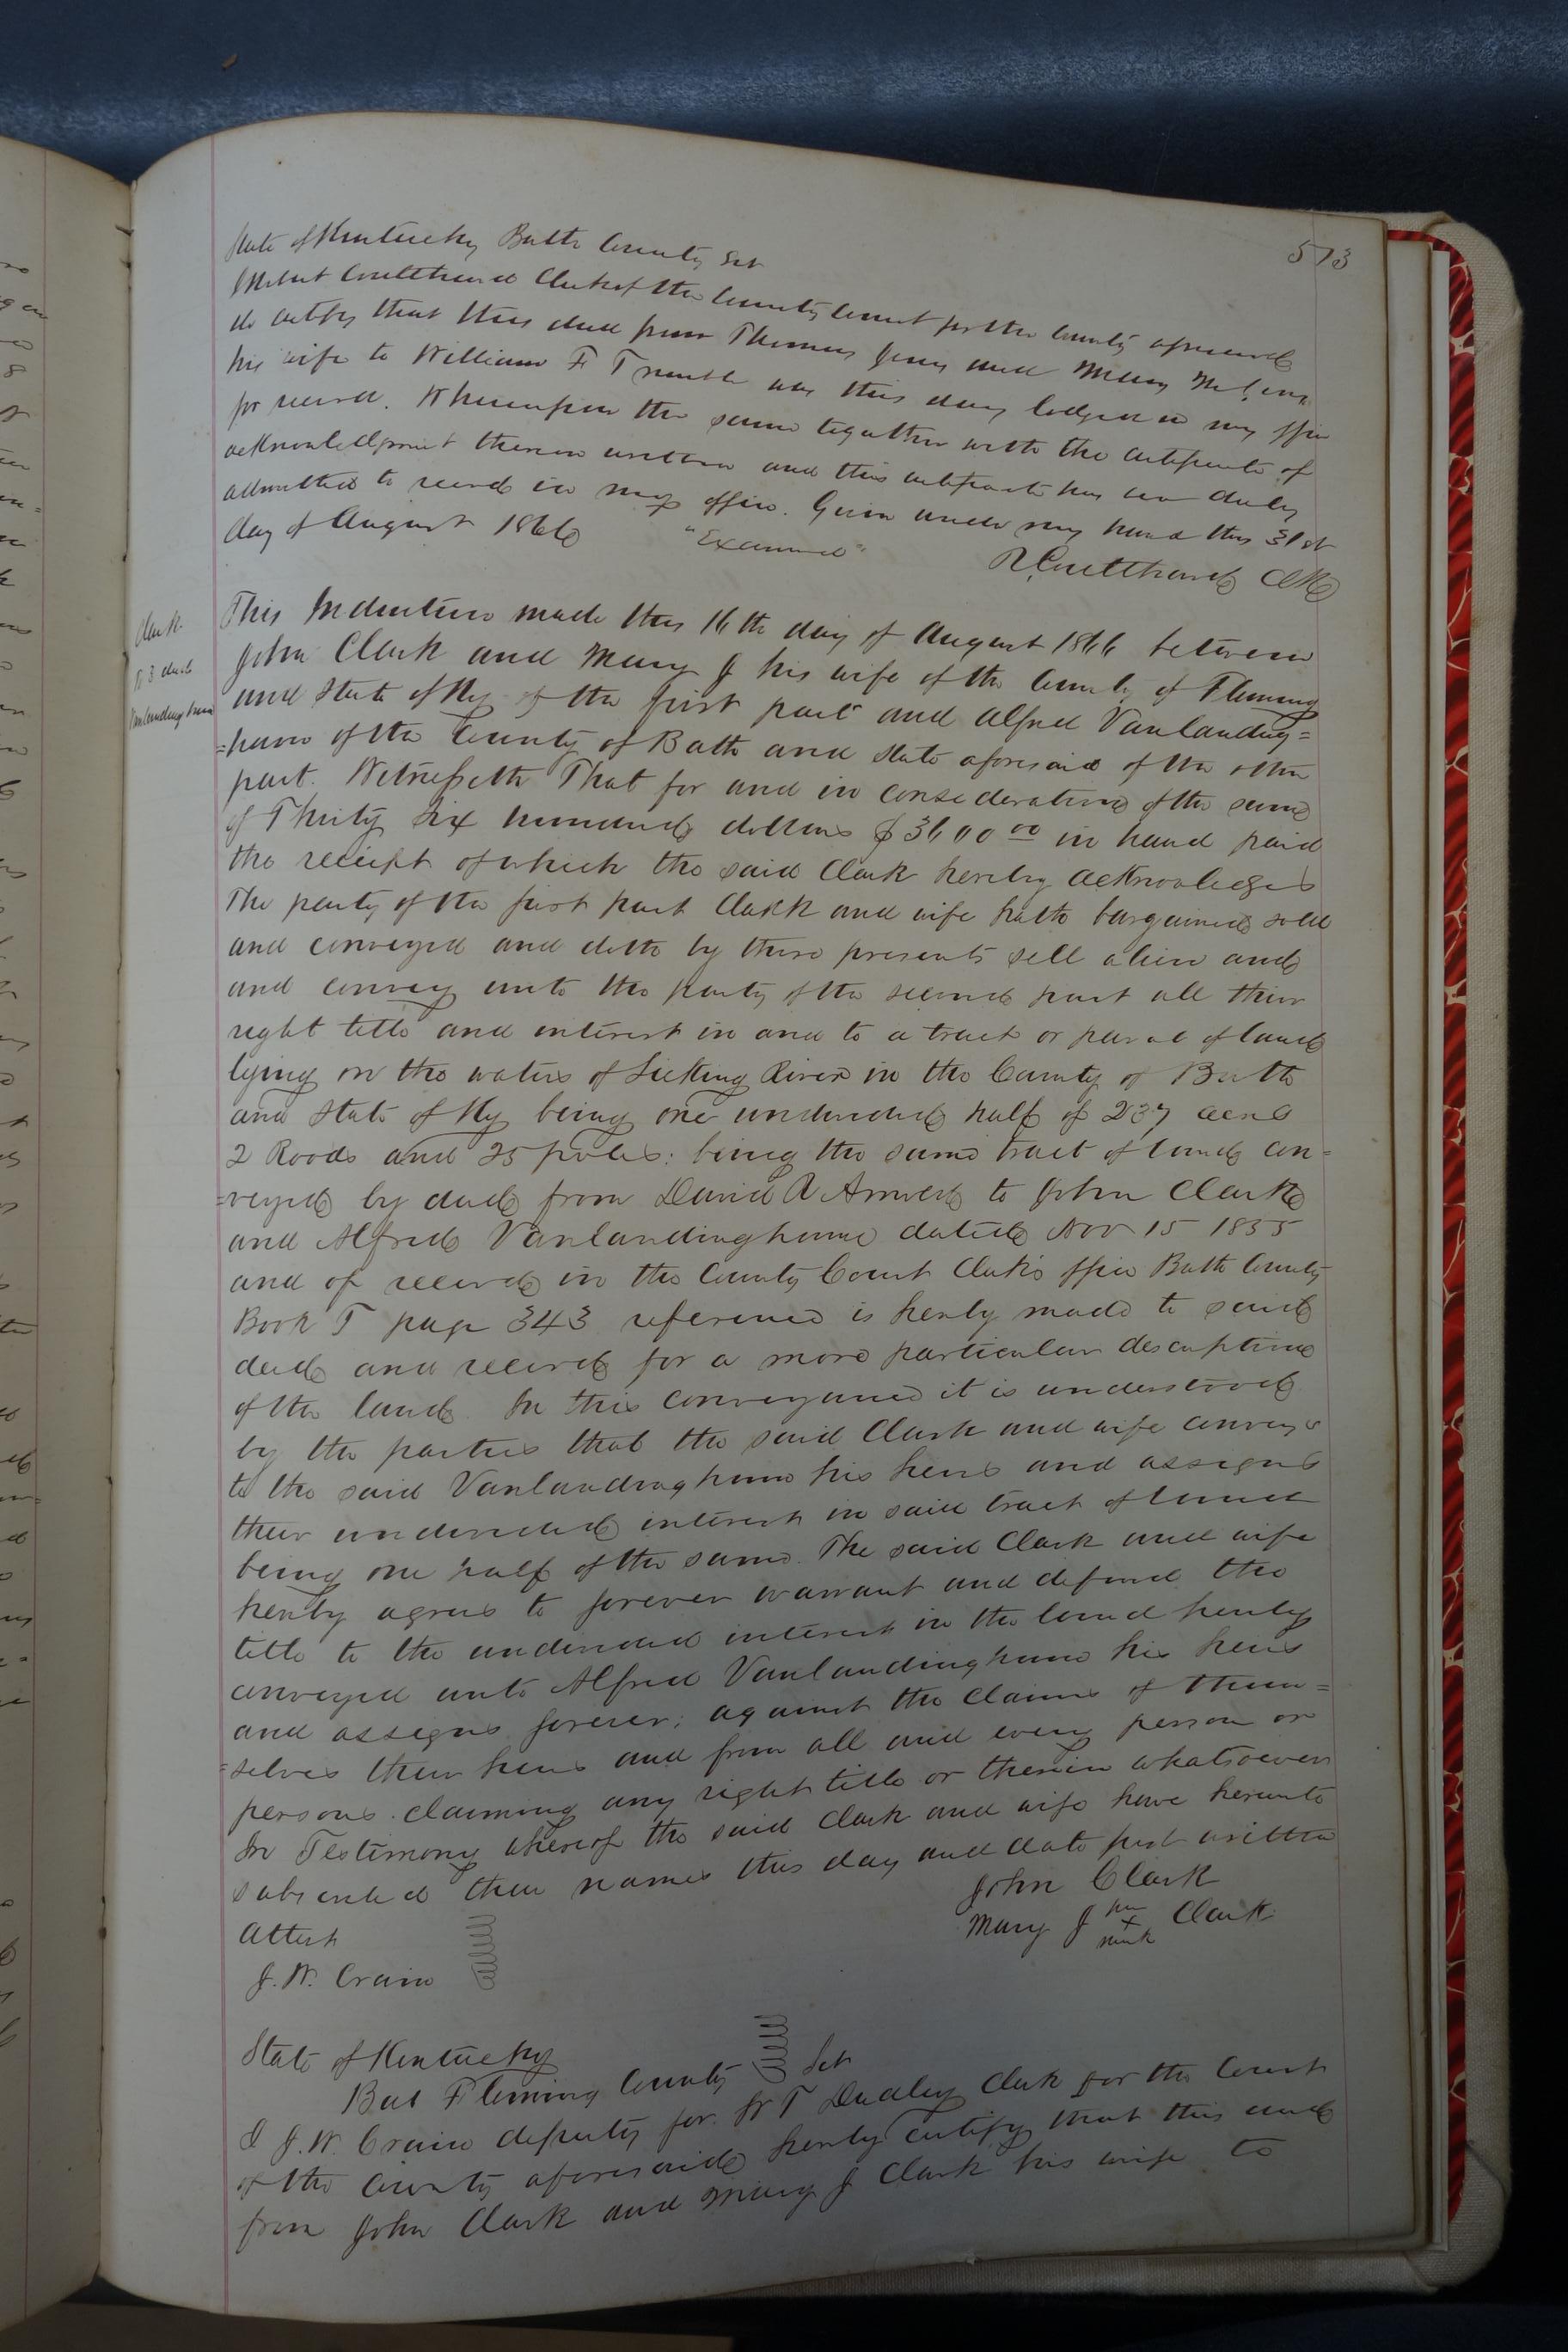 573
State of Kentucky Bath County Sct
I Robert Coulthard Clerk of the County Court for the County aforesaid
do certify that this deed from Thomas Jones and Mary M Jones
his wife to William F Trumbo was this day lodged in my office
for record. Whereupon the same together with the certificate of
acknowledgment thereon written and this certificate has been duly
admitted to record in my office. Given under my hand this 31st
day of August 1866 "Examined"
R. Coulthard Clk
Clark
to 3 deed
Vanlandingham
This Indenture made this 16th day of August 1866 between
John Clark and Mary J his wife of the County of Fleming
and State of Ky of the first part and Alfred Vanlanding=
=ham of the County of Bath and State aforesaid of the other
part. Witnesseth That for and in consideration of the sum
of Thirty Six hundred dollars $3600.00 in hand paid
the receipt of which the said Clark hereby acknowledges
The party of the first part Clark and wife hath bargained sold
and conveyed and doth by these presents sell alien and
and convey unto the party of the second part all their
right title and interest in and to a tract or parcel of land
lying on the waters of Licking River in the County of Bath
and State of Ky being one undivided half of 237 acres
2 Roods and 25 poles: being the same tract of land con=
=veyed by deed from David R Atwood to John Clark
and Alfred Vanlandingham dated Nov 15 1855
and of record in the County Court Clerk's office Bath County
Book T page 343 reference is hereby made to said
deed and record for a more particular description
of the land. In this conveyance it is understood
by the parties that the said Clark and wife conveys
to the said Vanlandingham his heirs and assigns
their undivided interest in said tract of land
being one half of the same. The said Clark and wife
hereby agrees to forever warrant and defend the
title to the undivided interest in the land hereby
conveyed unto Alfred Vanlandingham his heirs
and assigns forever; against the claims of them=
=selves their heirs and from all and every person or
persons claiming any right title or therein whatsoever
In Testimony whereof the said Clark and wife have hereunto
subscribed their names this day and date first written
John Clark
Mary J her x mark Clark
Attest
J. W. Crain
State of Kentucky
Bat Fleming County Sct
I J. W. Crain deputy for W T Dudley Clerk for the Court
of the County aforesaid hereby certify that this deed
from John Clark and Mary J Clark his wife to